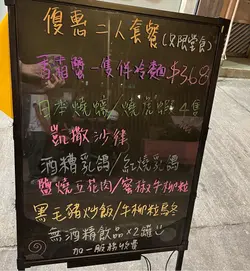 優惠二人套餐(只限堂食)
香箱蟹一隻伴冷麵$368
日本燒蠔/燒虎蝦4隻
凱撒沙律
酒糟乳鴿/紅燒乳鴿
鹽燒豆花肉/蜜椒牛柳粒
黑毛豬炒飯/牛柳粒烏冬
無酒精飲品x2罐
加一服務收費